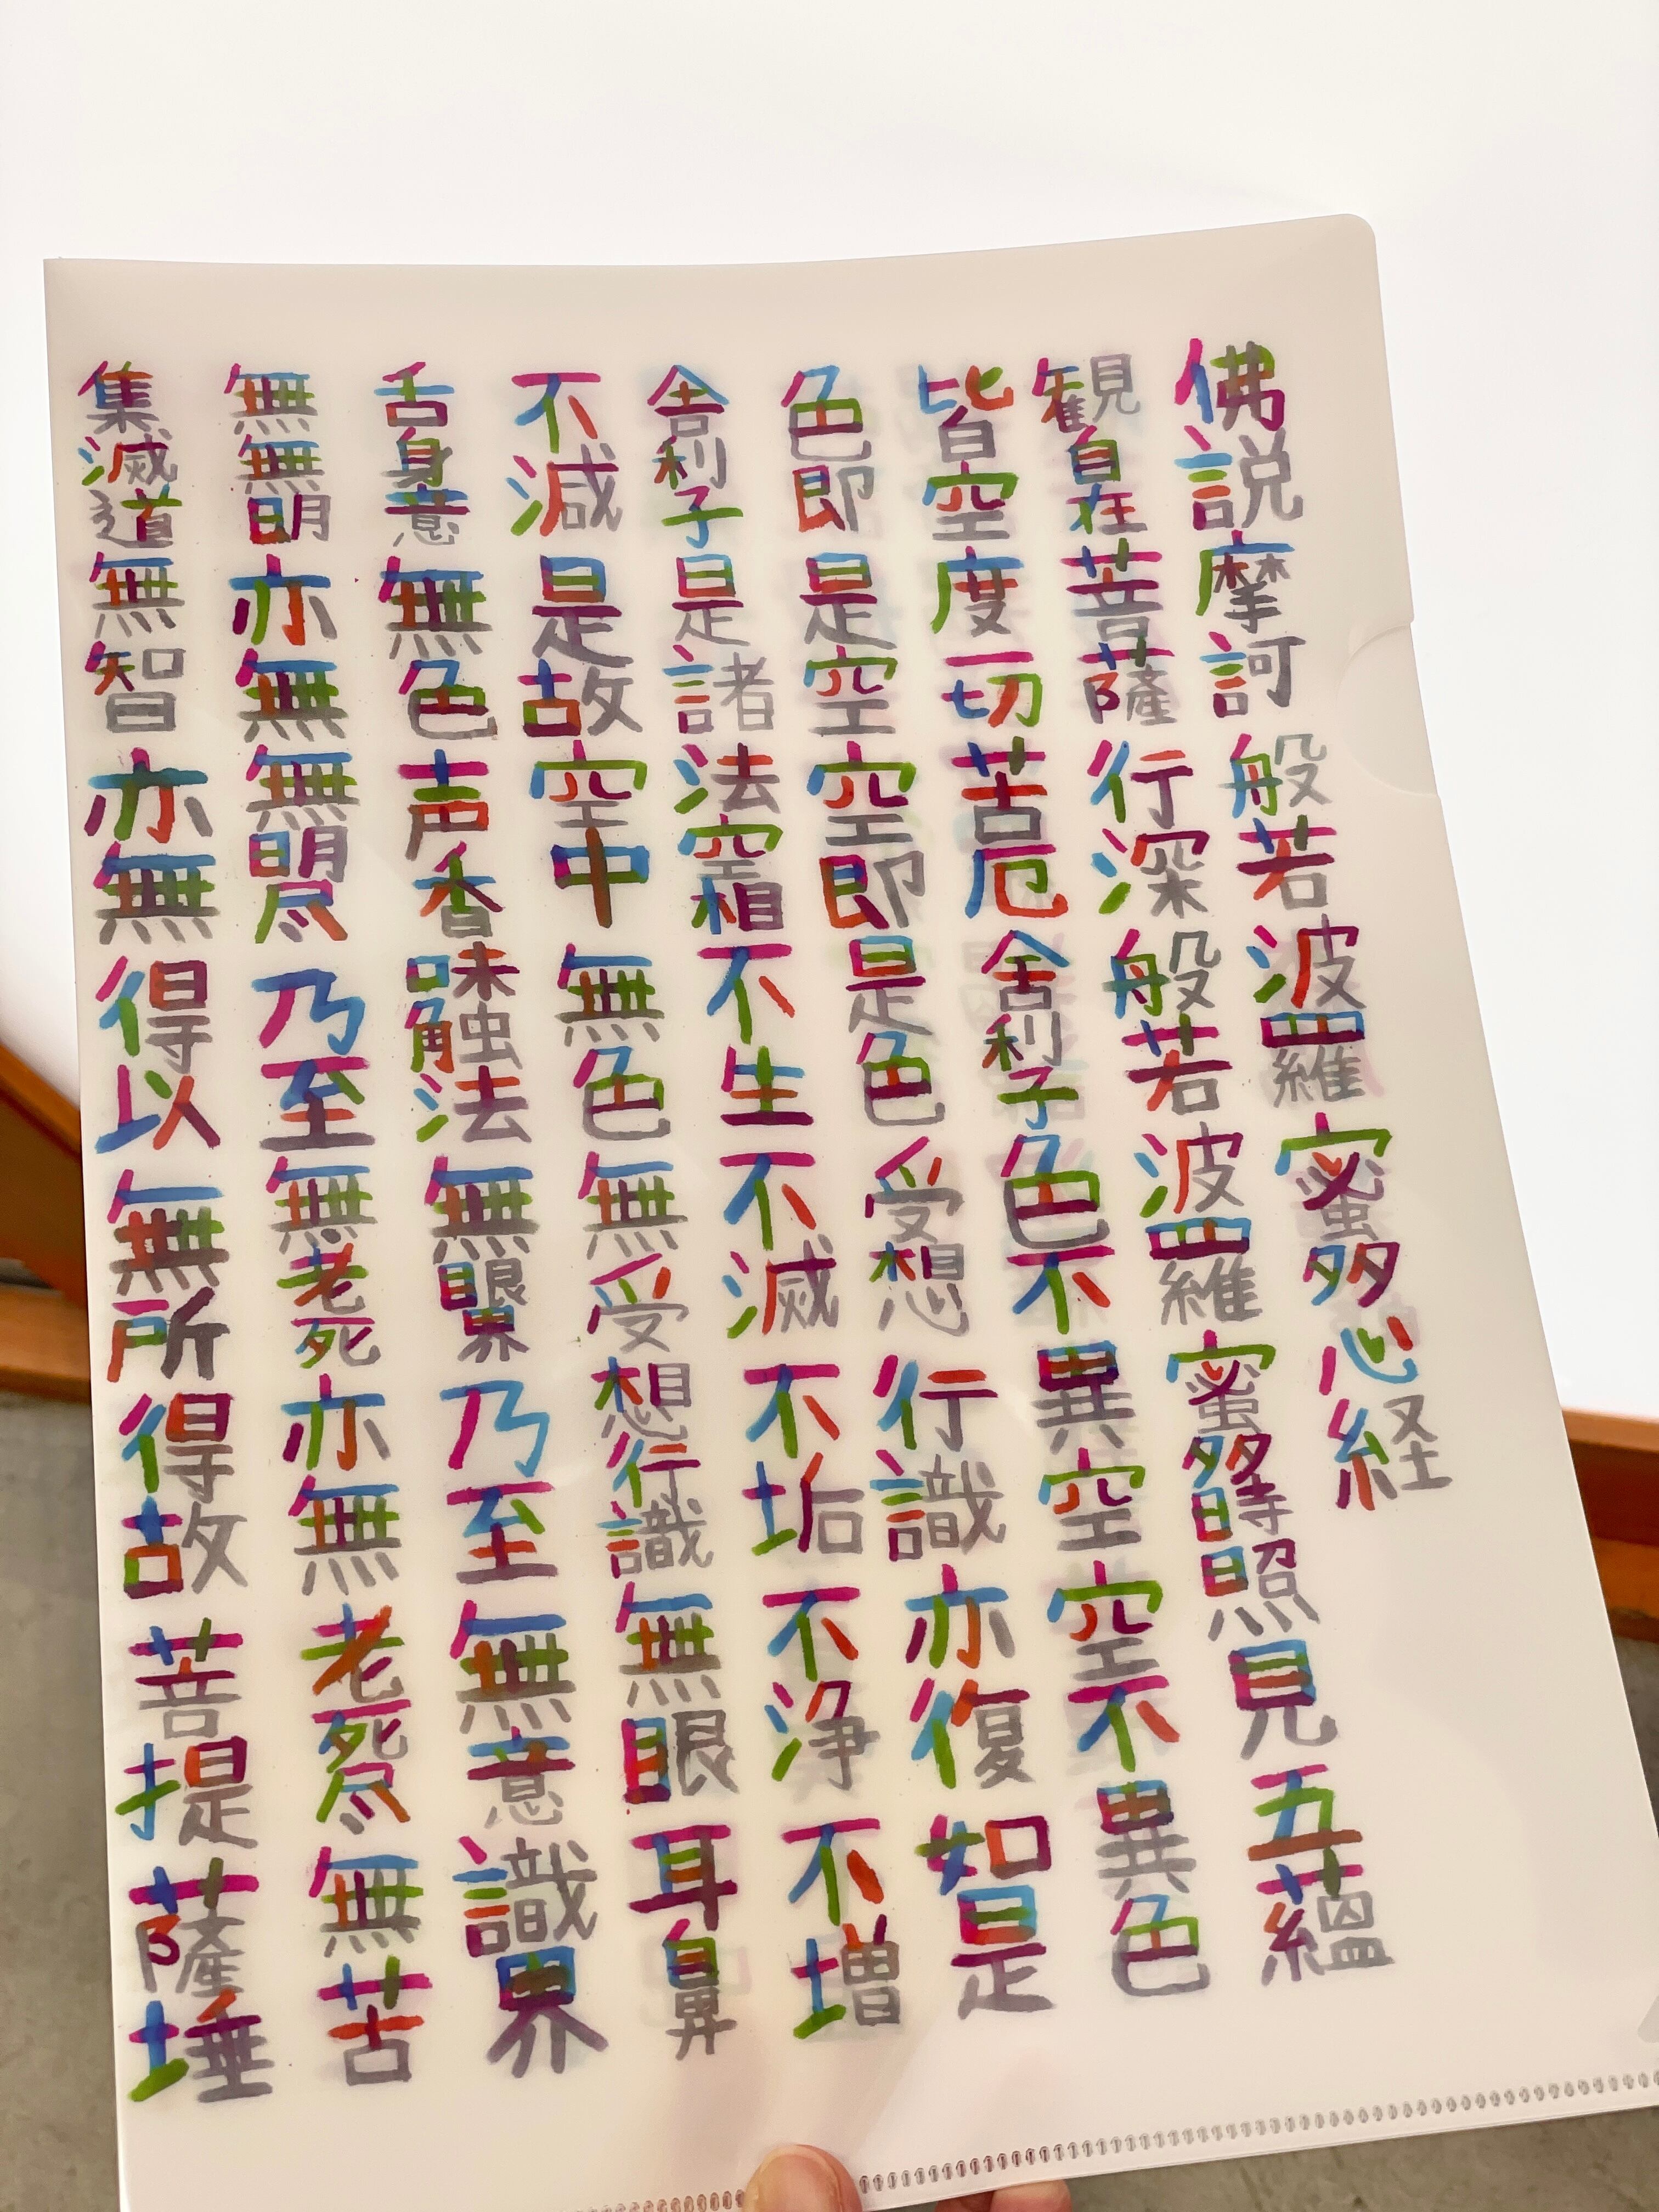 佛説摩訶般若波羅蜜多心経
観自在菩薩行深般若波羅蜜多時照見五蘊
皆空度一切苦厄舎利子色不異空空不異色
色即是空空即是色受想行識亦復如是
舎利子是諸法空相不生不滅不垢不浄不増
不減是故空中無色無受想行識無眼耳鼻
舌身意無色声香味触法無眼界乃至無意識界
無無明亦無無明尽乃至無老死亦無老死尽無苦
集滅道無智亦無得以無所得故菩提薩埵